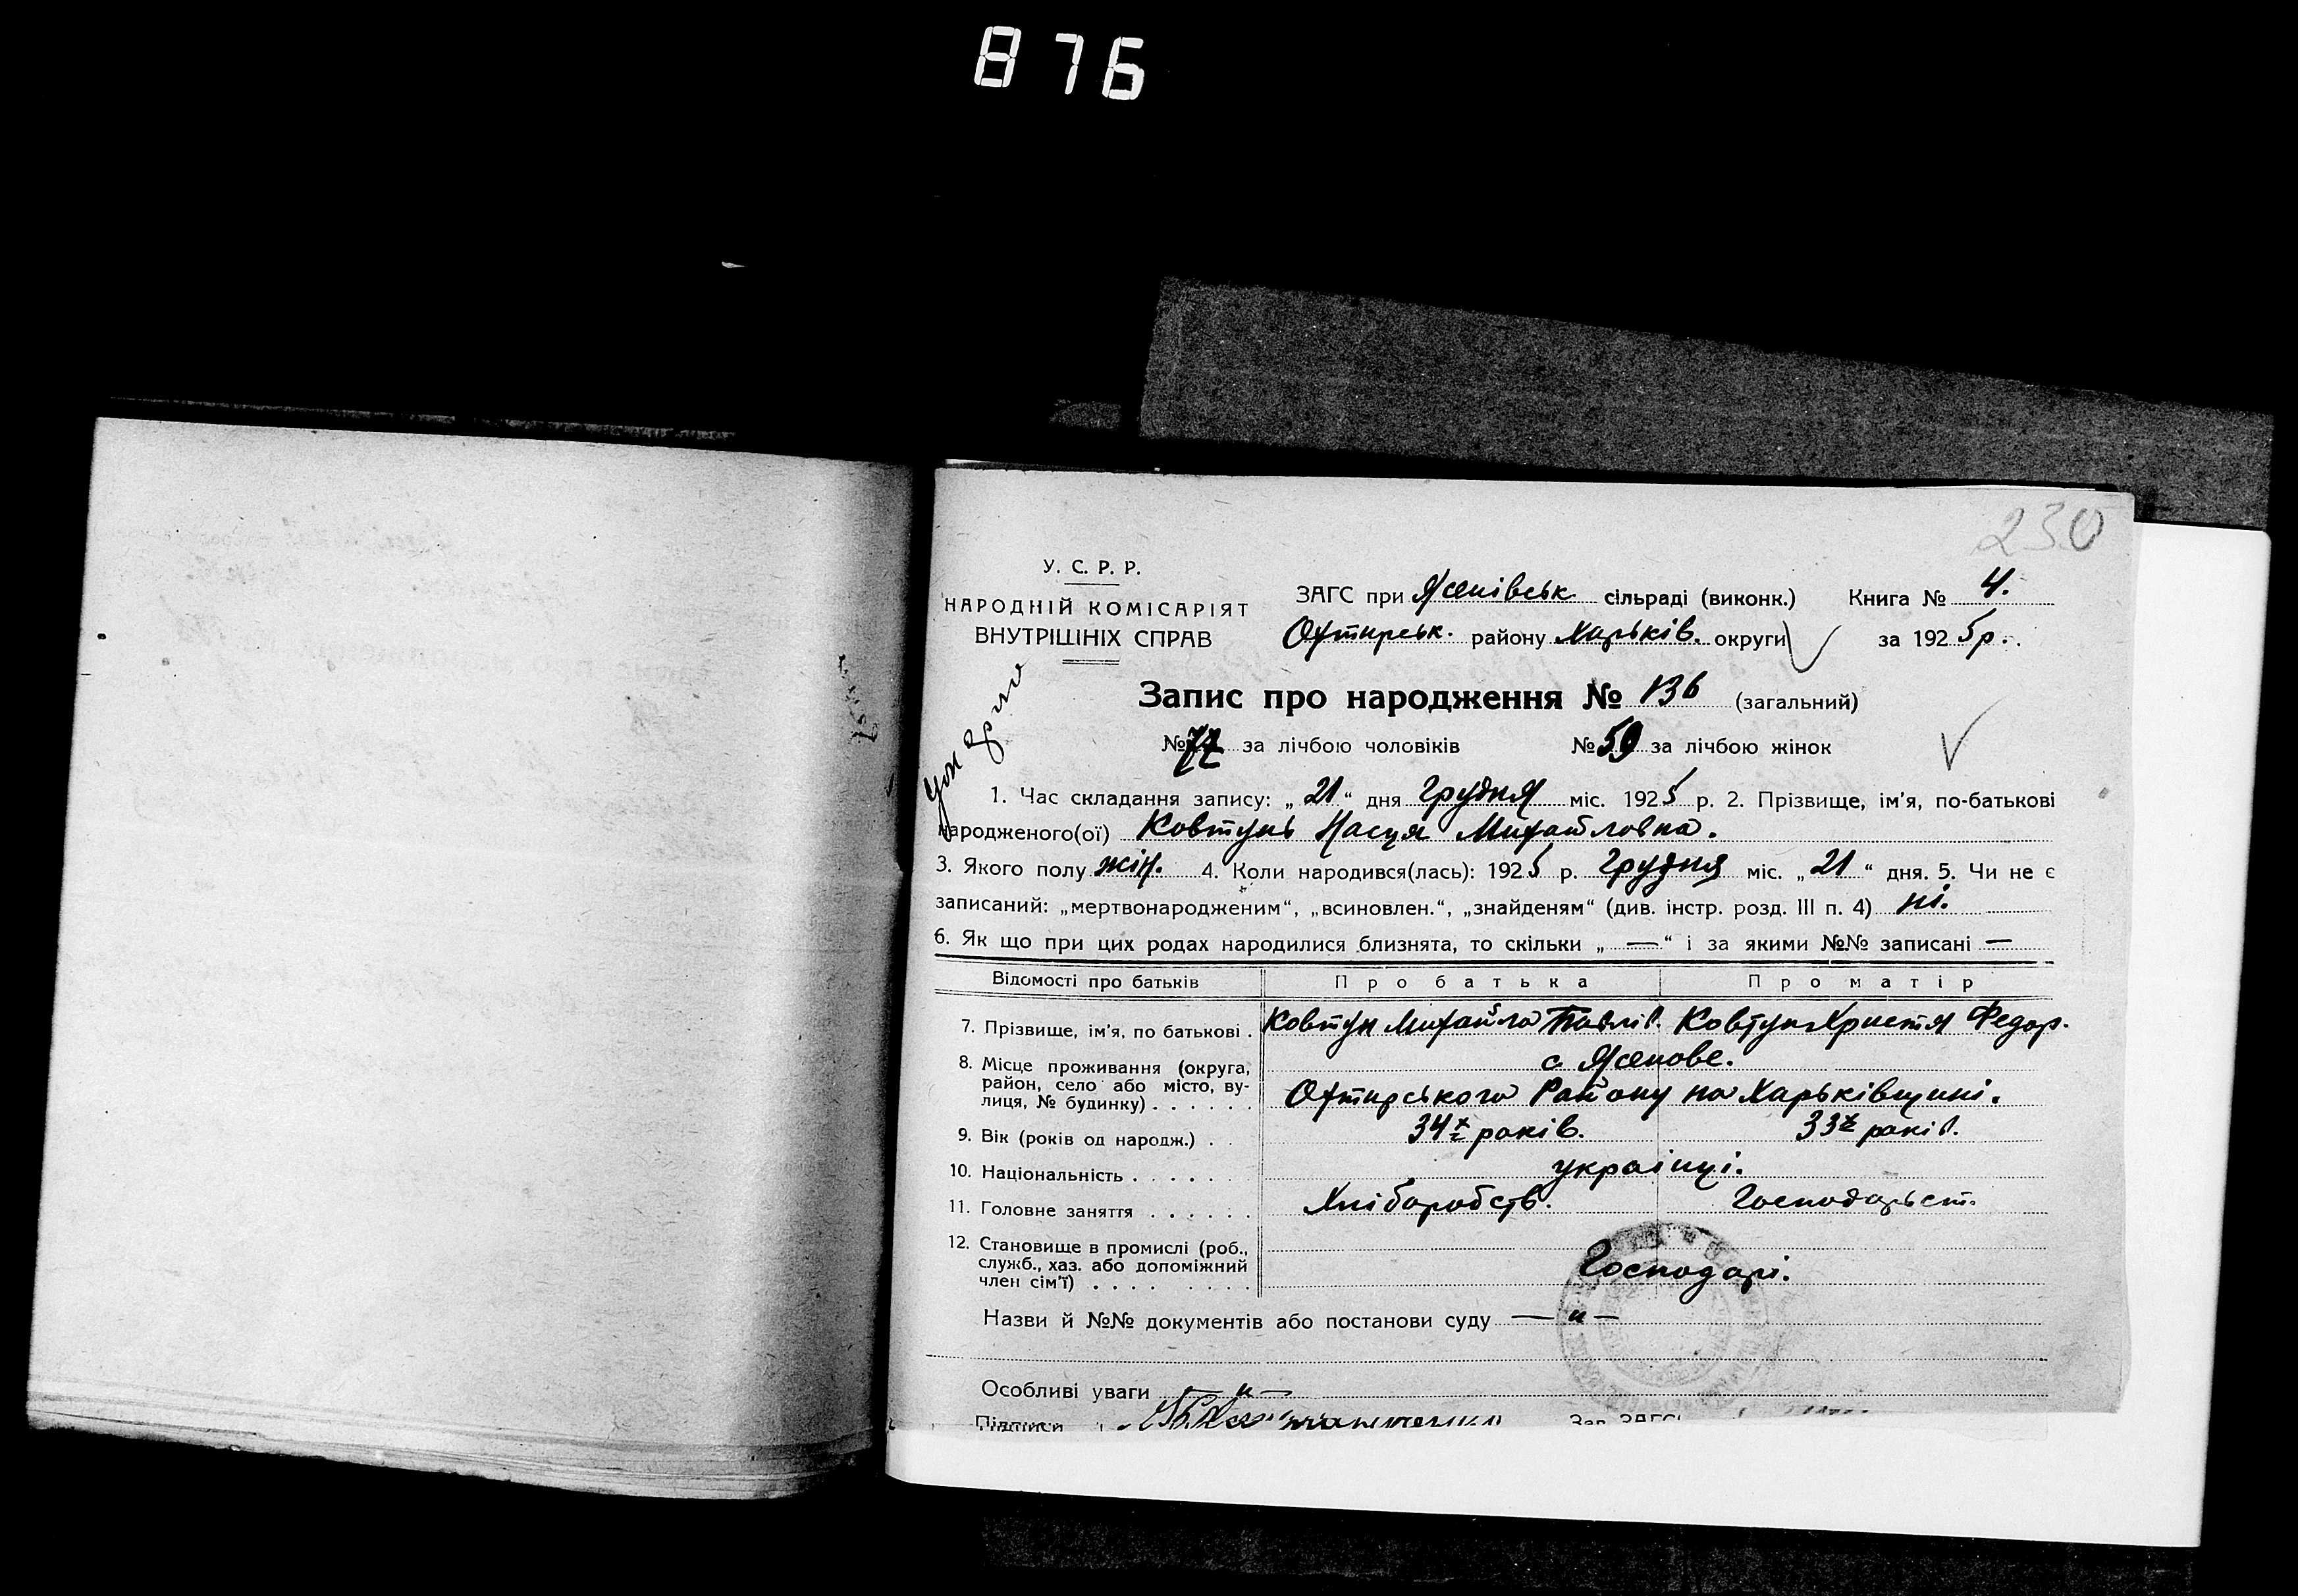 876
230
У. С. Р. Р.
НАРОДНІЙ КОМІСАРІЯТ
ВНУТРІШНІХ СПРАВ
ЗАГС при Ясенівськ. сільраді (виконк.) Книга № 4.
Охтирськ. району Харьків. округи за 1925р.
Запис про народження № 136 (загальний)
№ 77 за лічбою чоловіків № 59 за лічбою жінок
1. Час складання запису: „21“ дня Грудня міс. 1925 р. 2. Прізвище, ім'я, по-батькові
народженого(ої) Ковтунь Насця Михайловна.
3. Якого полу жін. 4. Коли народився(лась): 1925 р. Грудня міс. „21“ дня. 5. Чи не є
записаний: „мертвонародженим“, „всиновлен.“, „знайденям“ (див. інстр. розд. III п. 4) ні.
6. Як що при цих родах народилися близнята, то скільки „—“ і за якими №№ записані —
Відомості про батьків Про батька Про матір
7. Прізвище, ім'я, по батькові. Ковтун Михайло Павлів. Ковтун Христя Федор.
8. Місце проживання (округа, с. Ясенове.
район, село або місто, ву-
лиця, № будинку) . . . . . . Охтирського Району на Харьківщині.
9. Вік (років од народж.) . . 34х років. 33х років.
10. Національність . . . . . українці.
11. Головне заняття . . . . . . Хліборобств. Господарьст.
12. Становище в промислі (роб.,
служб., хаз. або допоміжний Господарі.
член сім'ї) . . . . . . . .
Назви й №№ документів або постанови суду — „ —
Особливі уваги — „ —
Підписи Зав. ЗАГС